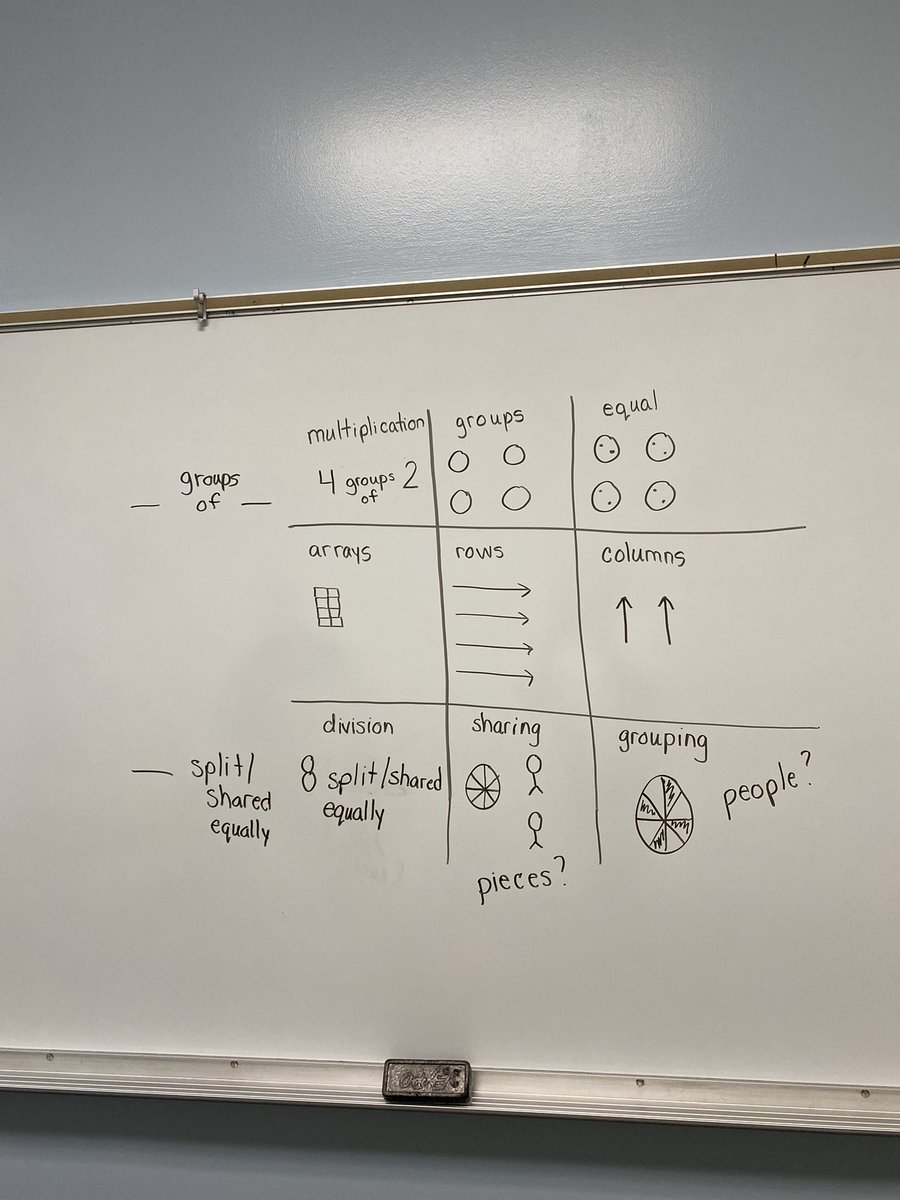 multiplication
groups
equal
groups
of
4 groups 2
of
arrays
rows
columns
division
sharing
grouping
split/
shared
equally
8 split/shared
equally
people?
pieces?
EXPO